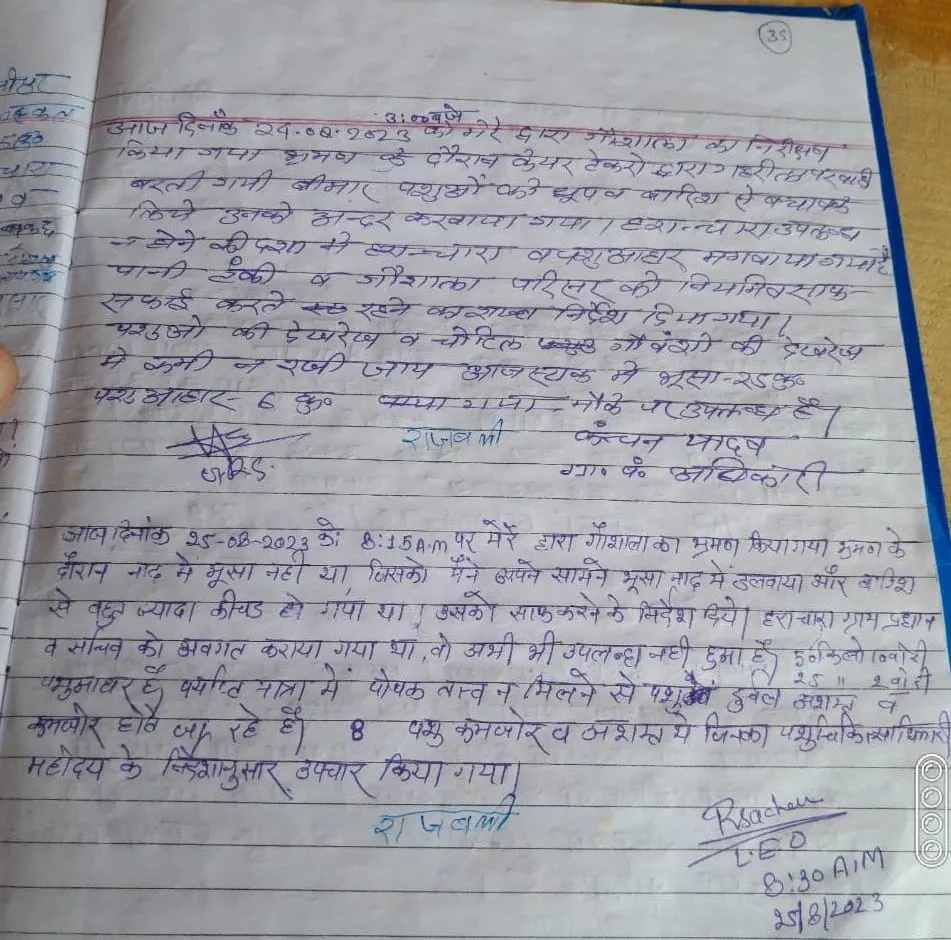 35
3:00 बजे
आज दिनाँक 24-08-2023 को मेरे द्वारा गौशाला का निरीक्षण
किया गया भ्रमण के दौरान केयर टेकरो द्वारा
बरती गयी बीमार पशुओं को धूप व बारिश से बचाव के
लिये उनको अन्दर करवाया गया। हरा चारा उपलब्ध
न होने की दशा मे हरा चारा व पशुआहार मंगवाया गया है
पानी टंकी व गौशाला परिसर को नियमित साफ
सफाई करते रहने का निर्देश दिया गया।
पशुओ की देखरेख व चोटिल गौवंशो की देखरेख
मे कमी न रखी जाय आज स्टाक मे भूसा-25 कु०
पशुआहार- 6 कु० मौके पर उपलब्ध है।
राजबली कंचन यादव
ग्रा० पं० अधिकारी
आज दिनांक 25-08-2023 को 8:15 A.m पर मेरे द्वारा गौशाला का भ्रमण किया गया भ्रमण के
दौरान नाद में भूसा नही था, जिसको मैंने अपने सामने भूसा नाद में डलवाया और बारिश
से बहुत ज्यादा कीचड हो गया था। उसको साफ करने के निर्देश दिये। हरा चारा ग्राम प्रधान
व सचिव को अवगत कराया गया था, वो अभी भी उपलब्ध नही हुआ है। 50 किलो 1 बोरी
25 " 2 बोरी
पशुआहार है। पर्याप्त मात्रा में पोषक तत्व न मिलने से पशु दुर्बल अशक्त व
कमजोर होते जा रहे है। 8 पशु कमजोर व अशक्त थे जिनका पशुचिकित्साधिकारी
महोदय के निर्देशानुसार उपचार किया गया।
राजबली
L.E.O
8:30 A.M
25/8/2023